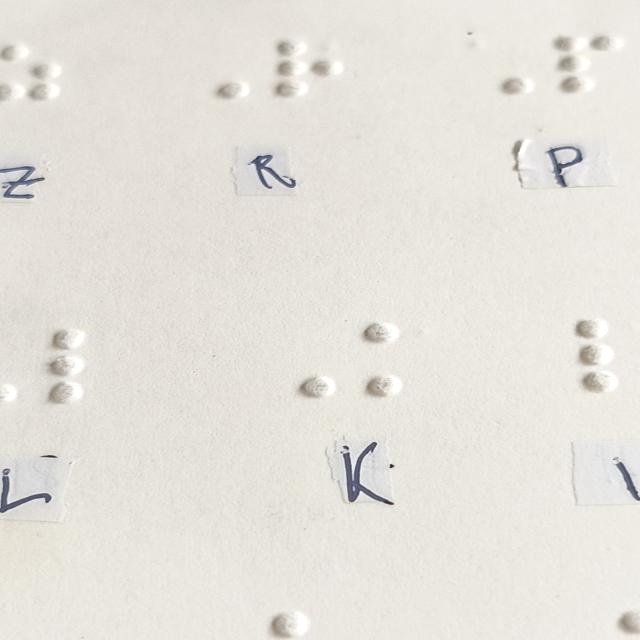 ⠵ ⠠⠗ ⠠⠏
Z R P
⠠⠇ ⠠⠅ ⠇
L K